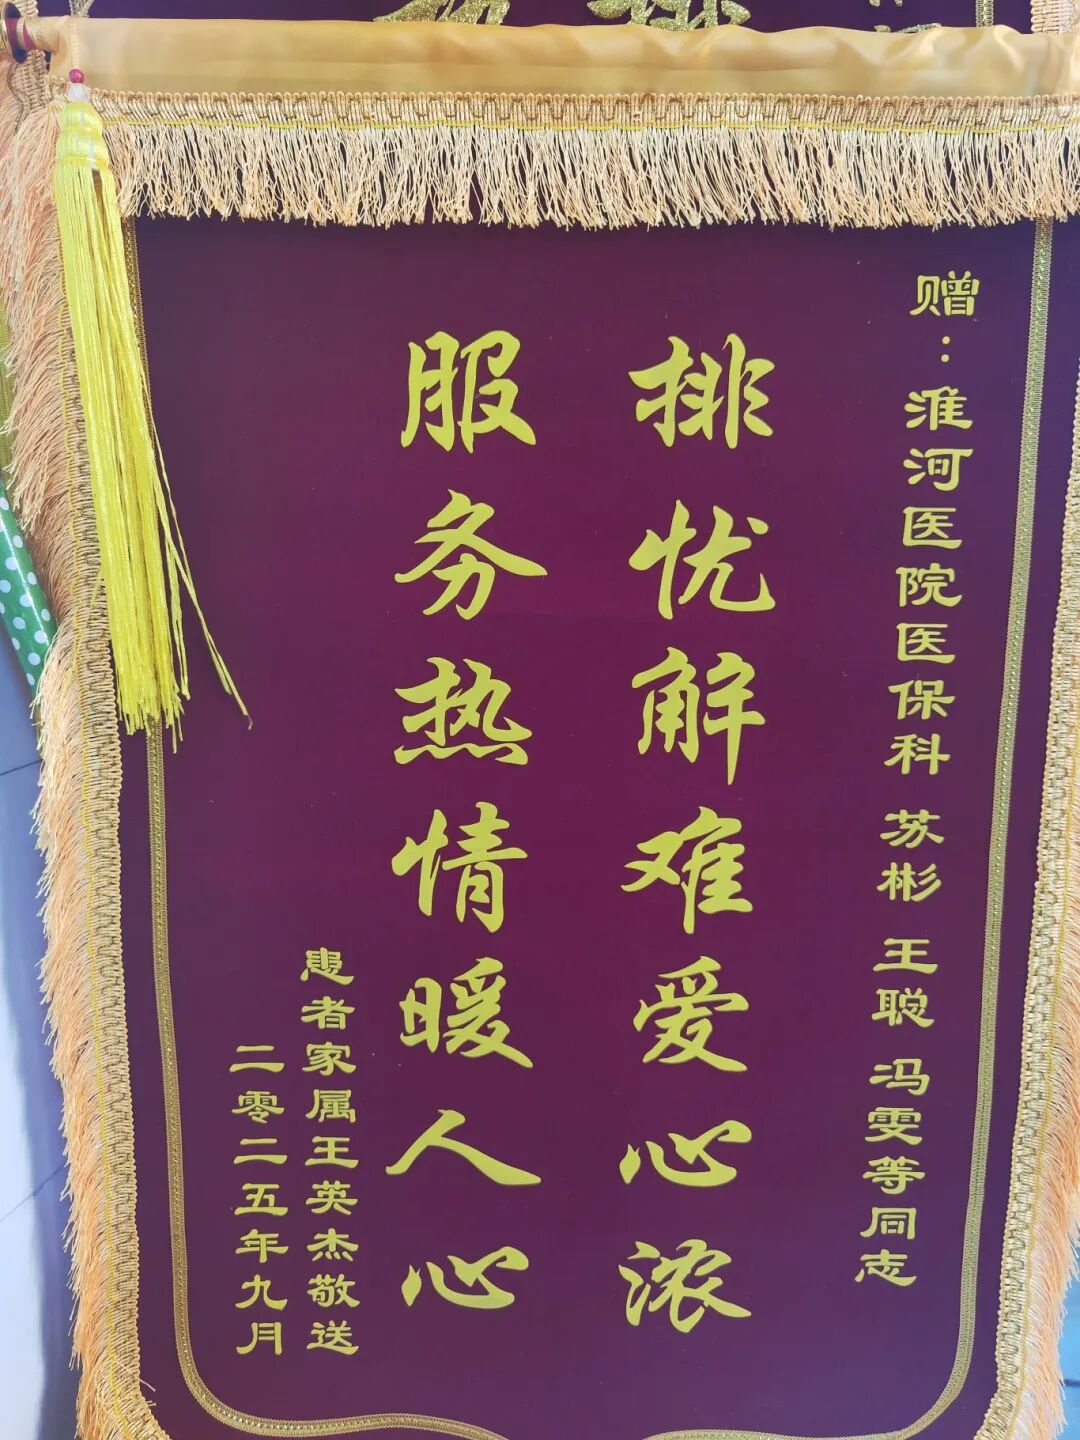 赠：淮河医院医保科 苏彬 王聪 冯雯等同志
排忧解难爱心浓
服务热情暖人心
患者家属王英杰敬送
二零二五年九月